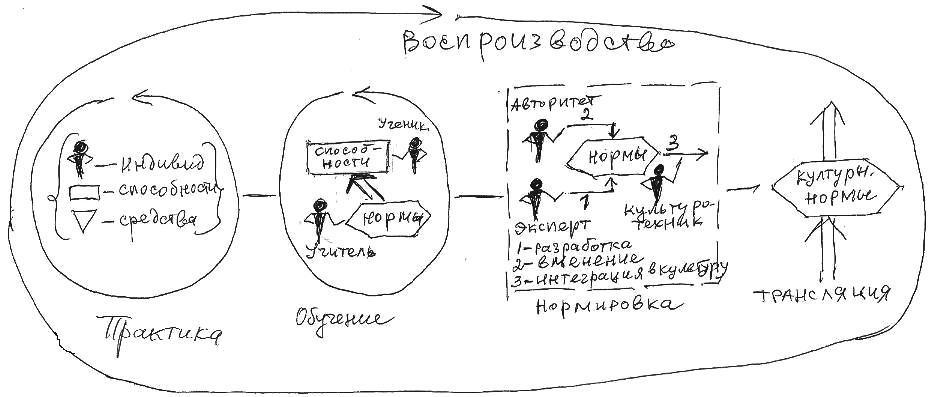 Воспроизводство
– индивид
– способности
– средства
Практика
Ученик
способ-
ности
нормы
Учитель
Обучение
Авторитет
2
нормы
3
1
Эксперт
Культуро-
техник
1–разработка
2–вменение
3–интеграция в культуру
Нормировка
культурн.
нормы
Трансляция